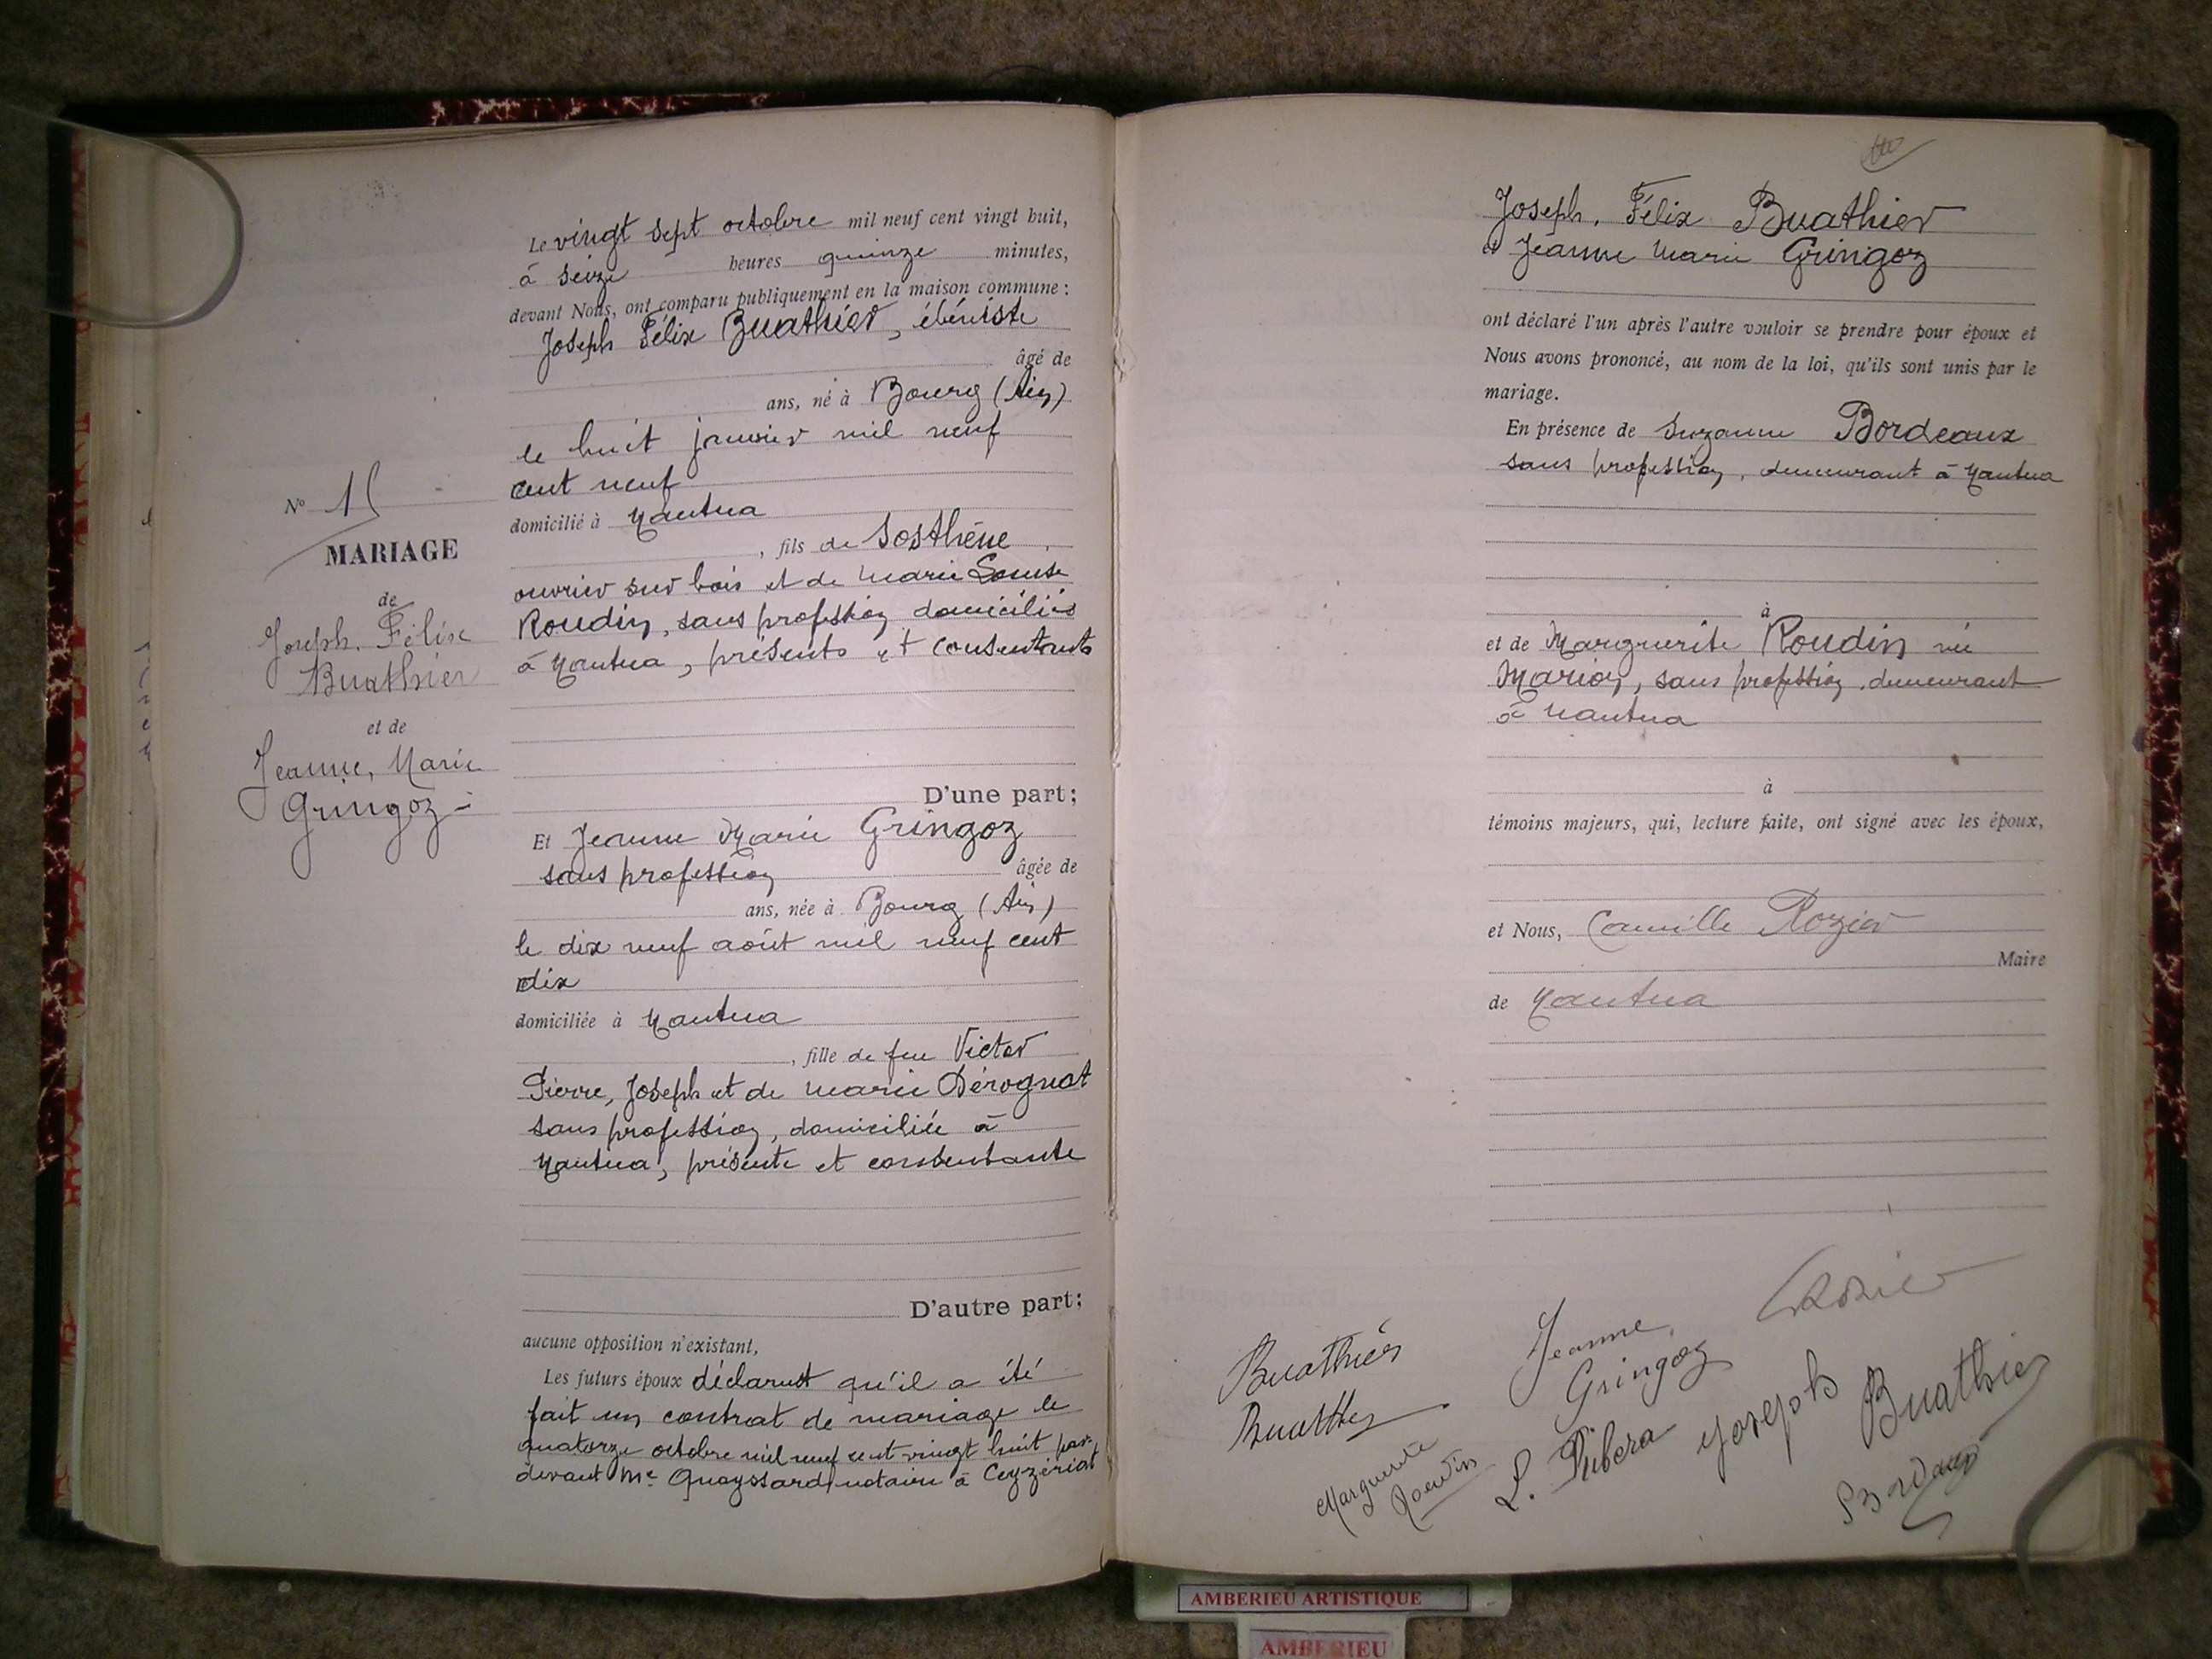 Le vingt sept octobre mil neuf cent vingt huit,
à seize heures quinze minutes,
devant Nous, ont comparu publiquement en la maison commune :
Joseph Félix Buathier, ébéniste
âgé de
ans, né à Bourg (Ain)
le huit janvier mil neuf
cent neuf
domicilié à Nantua
, fils de Sosthène
ouvrier sur bois et de Marie Louise
Roudin, sans profession domiciliés
à Nantua, présents et consentants
D'une part ;
Et Jeanne Marie Gringoz
sans profession âgée de
ans, née à Bourg (Ain)
le dix neuf août mil neuf cent
dix
domiciliée à Nantua
, fille de feu Victor
Pierre, Joseph et de Marie Dérognat
sans profession, domiciliée à
Nantua, présente et consentante
D'autre part ;
aucune opposition n'existant,
Les futurs époux déclarent qu'il a été
fait un contrat de mariage le
quatorze octobre mil neuf cent vingt huit par-
devant Me Quayssard, notaire à Ceyzériat
No 15
MARIAGE
de
Joseph, Félix
Buathier
et de
Jeanne, Marie
Gringoz
Joseph, Félix Buathier
et Jeanne Marie Gringoz
ont déclaré l'un après l'autre vouloir se prendre pour époux et
Nous avons prononcé, au nom de la loi, qu'ils sont unis par le
mariage.
En présence de Suzanne Bordeaux
sans profession, demeurant à Nantua
à
et de Marguerite Roudin née
Marion, sans profession, demeurant
à Nantua
à
témoins majeurs, qui, lecture faite, ont signé avec les époux,
et Nous, Camille Rozier
Maire
de Nantua
Rozier
Buathier
Jeanne
Gringoz
Buathier
Marguerite
Roudin
L. Pubera
Joseph Buathier
Bordeaux
AMBERIEU ARTISTIQUE
AMBERIEU